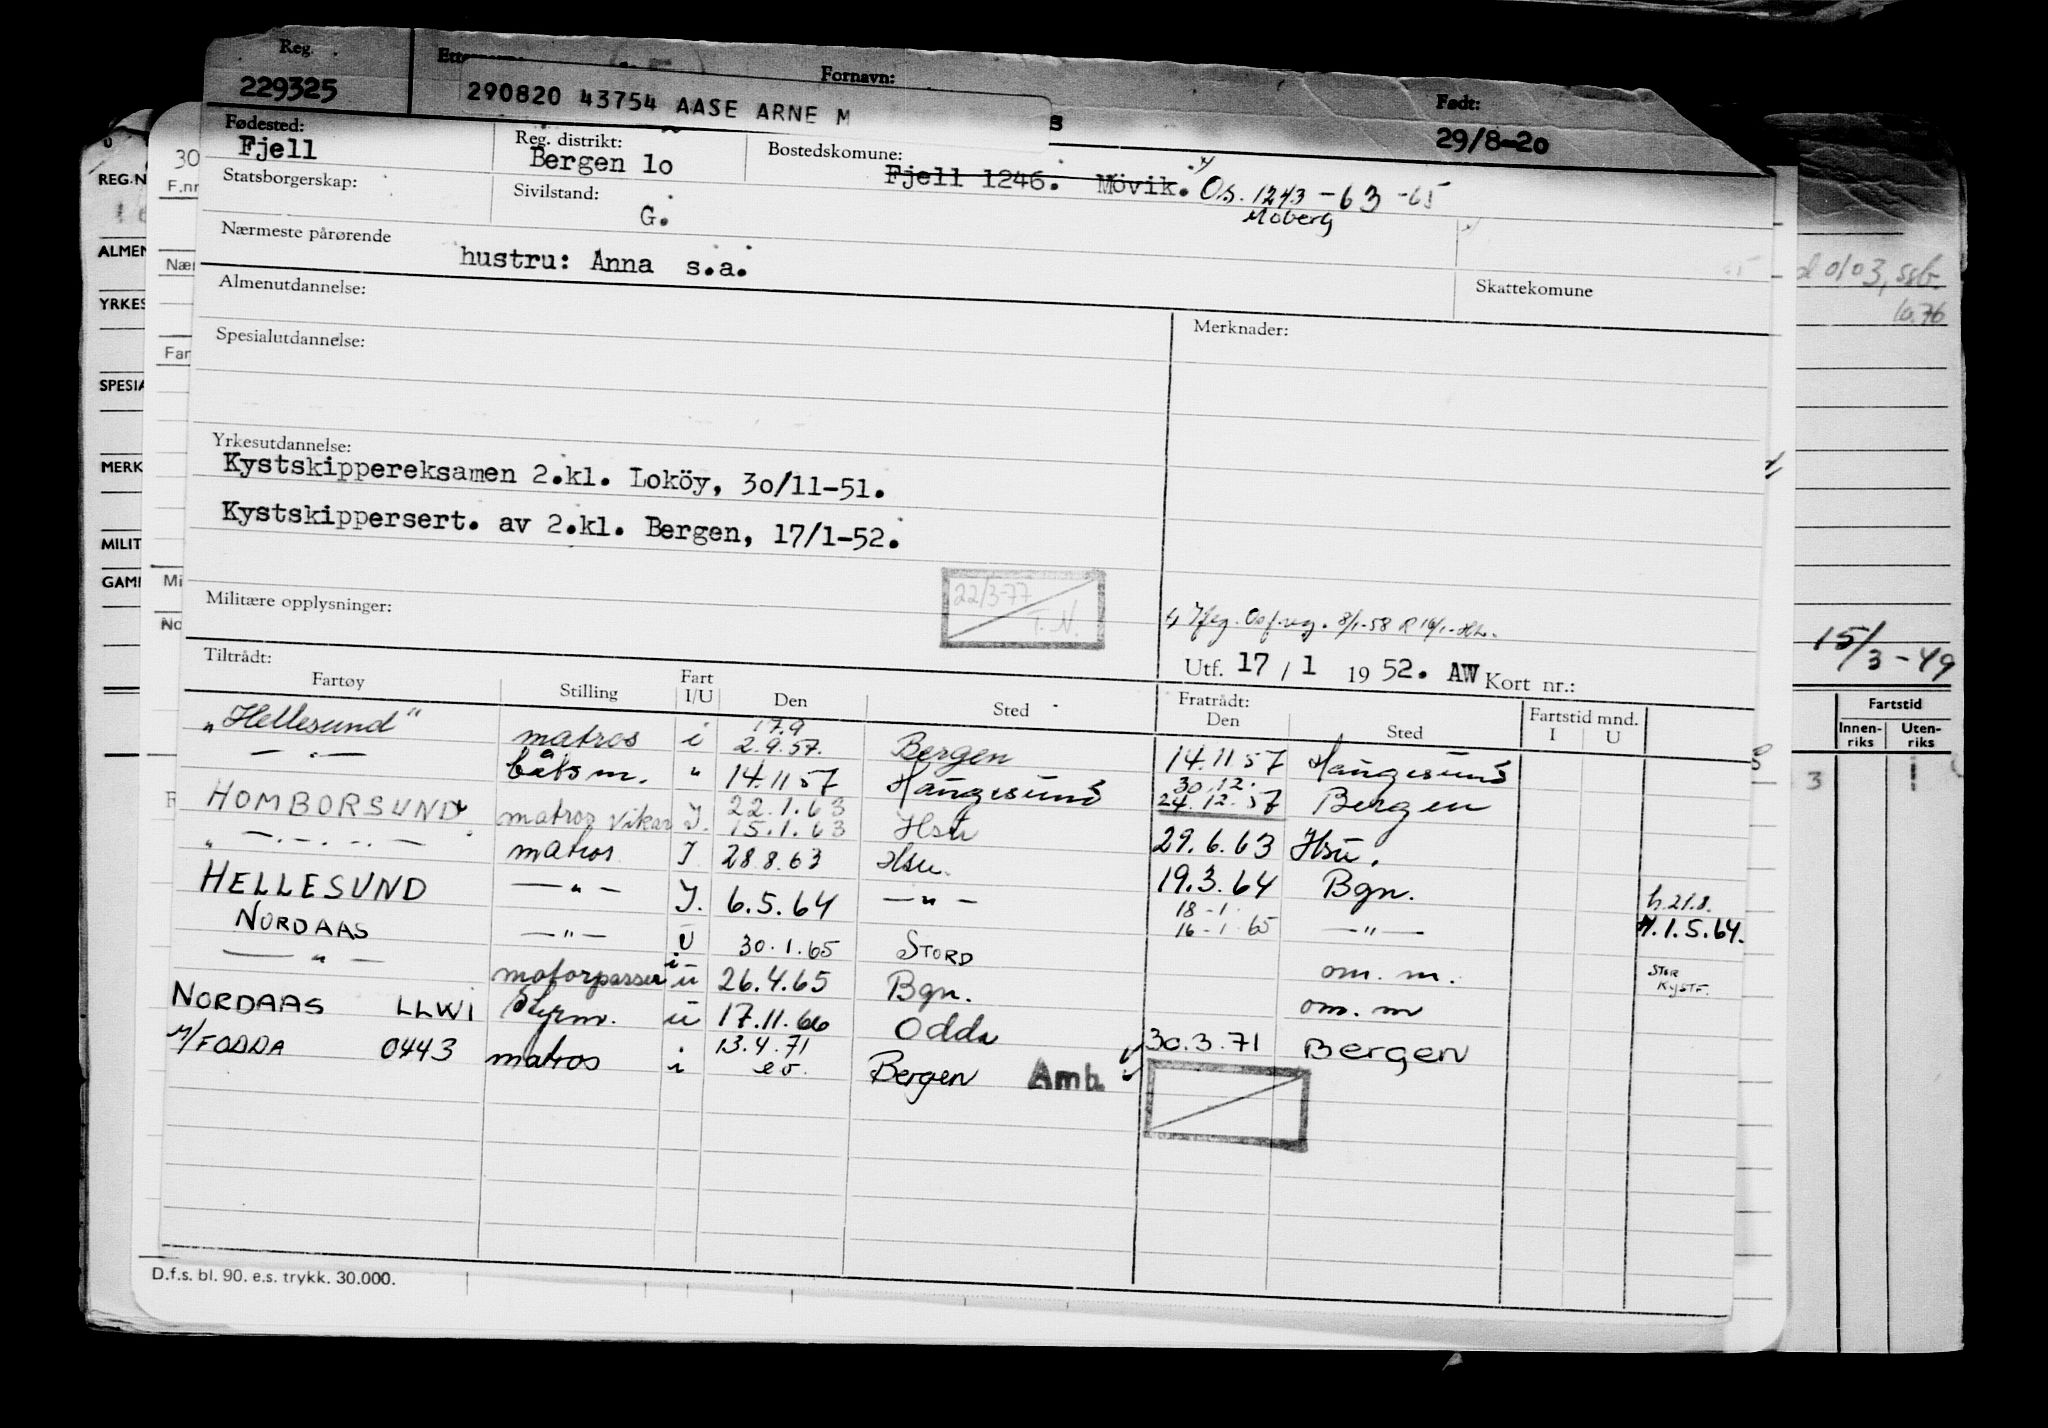 Reg. Fornavn: Født:
229325 290820 43754 AASE ARNE M 29/8-20
Fødested: Reg. distrikt: Bostedskomune:
Fjell Bergen 10 Fjell 1246. Mövik. Os. 1243 - 63 - 65
Moberg
Statsborgerskap: Sivilstand:
G.
Nærmeste pårørende
hustru: Anna s.a.
Almenutdannelse: Skattekomune
Spesialutdannelse: Merknader:
Yrkesutdannelse:
Kystskippereksamen 2.kl. Loköy, 30/11-51.
Kystskippersert. av 2.kl. Bergen, 17/1-52.
22/3-77
T.N.
Militære opplysninger:
Utf. 17 / 1 1952. AW Kort nr.:
Tiltrådt: Fratrådt:
Fartøy Stilling Fart I/U Den Sted Den Sted Fartstid mnd. I U
17.9
"Hellesund" matros i 2.9.57. Bergen 14.11 57 Haugesund
— . — båtsm. " 14.11 57 Haugesund 30.12. 24.12.57 Bergen
HOMBORSUND matros vikar I. 22.1.63 15.1.63 Hsu 29.6.63 Hsu.
" —.—.—.— matros I 28.8.63 Hsu. 19.3.64 Bgn. h.21.8.
HELLESUND — " — I. 6.5.64 — " — 18-1 16-1.65 — " — H.1.5.64.
NORDAAS — " — U 30.1.65 STORD om. m. STOR KYSTF.
— " — motorpasser i u 26.4.65 Bgn. om. m
NORDAAS LLWI Styrm. u 17.11.66 Odda 30.3.71 Bergen
M/FODDA 0443 matros i 13.4.71 Bergen Amb.
D.f.s. bl. 90. e.s. trykk. 30.000.
REG.N
F.nr
ALMEN
YRKES
SPESIA
MERK
MILIT
GAMI
15/3-49
Fartstid
Innen-riks Uten-riks
3